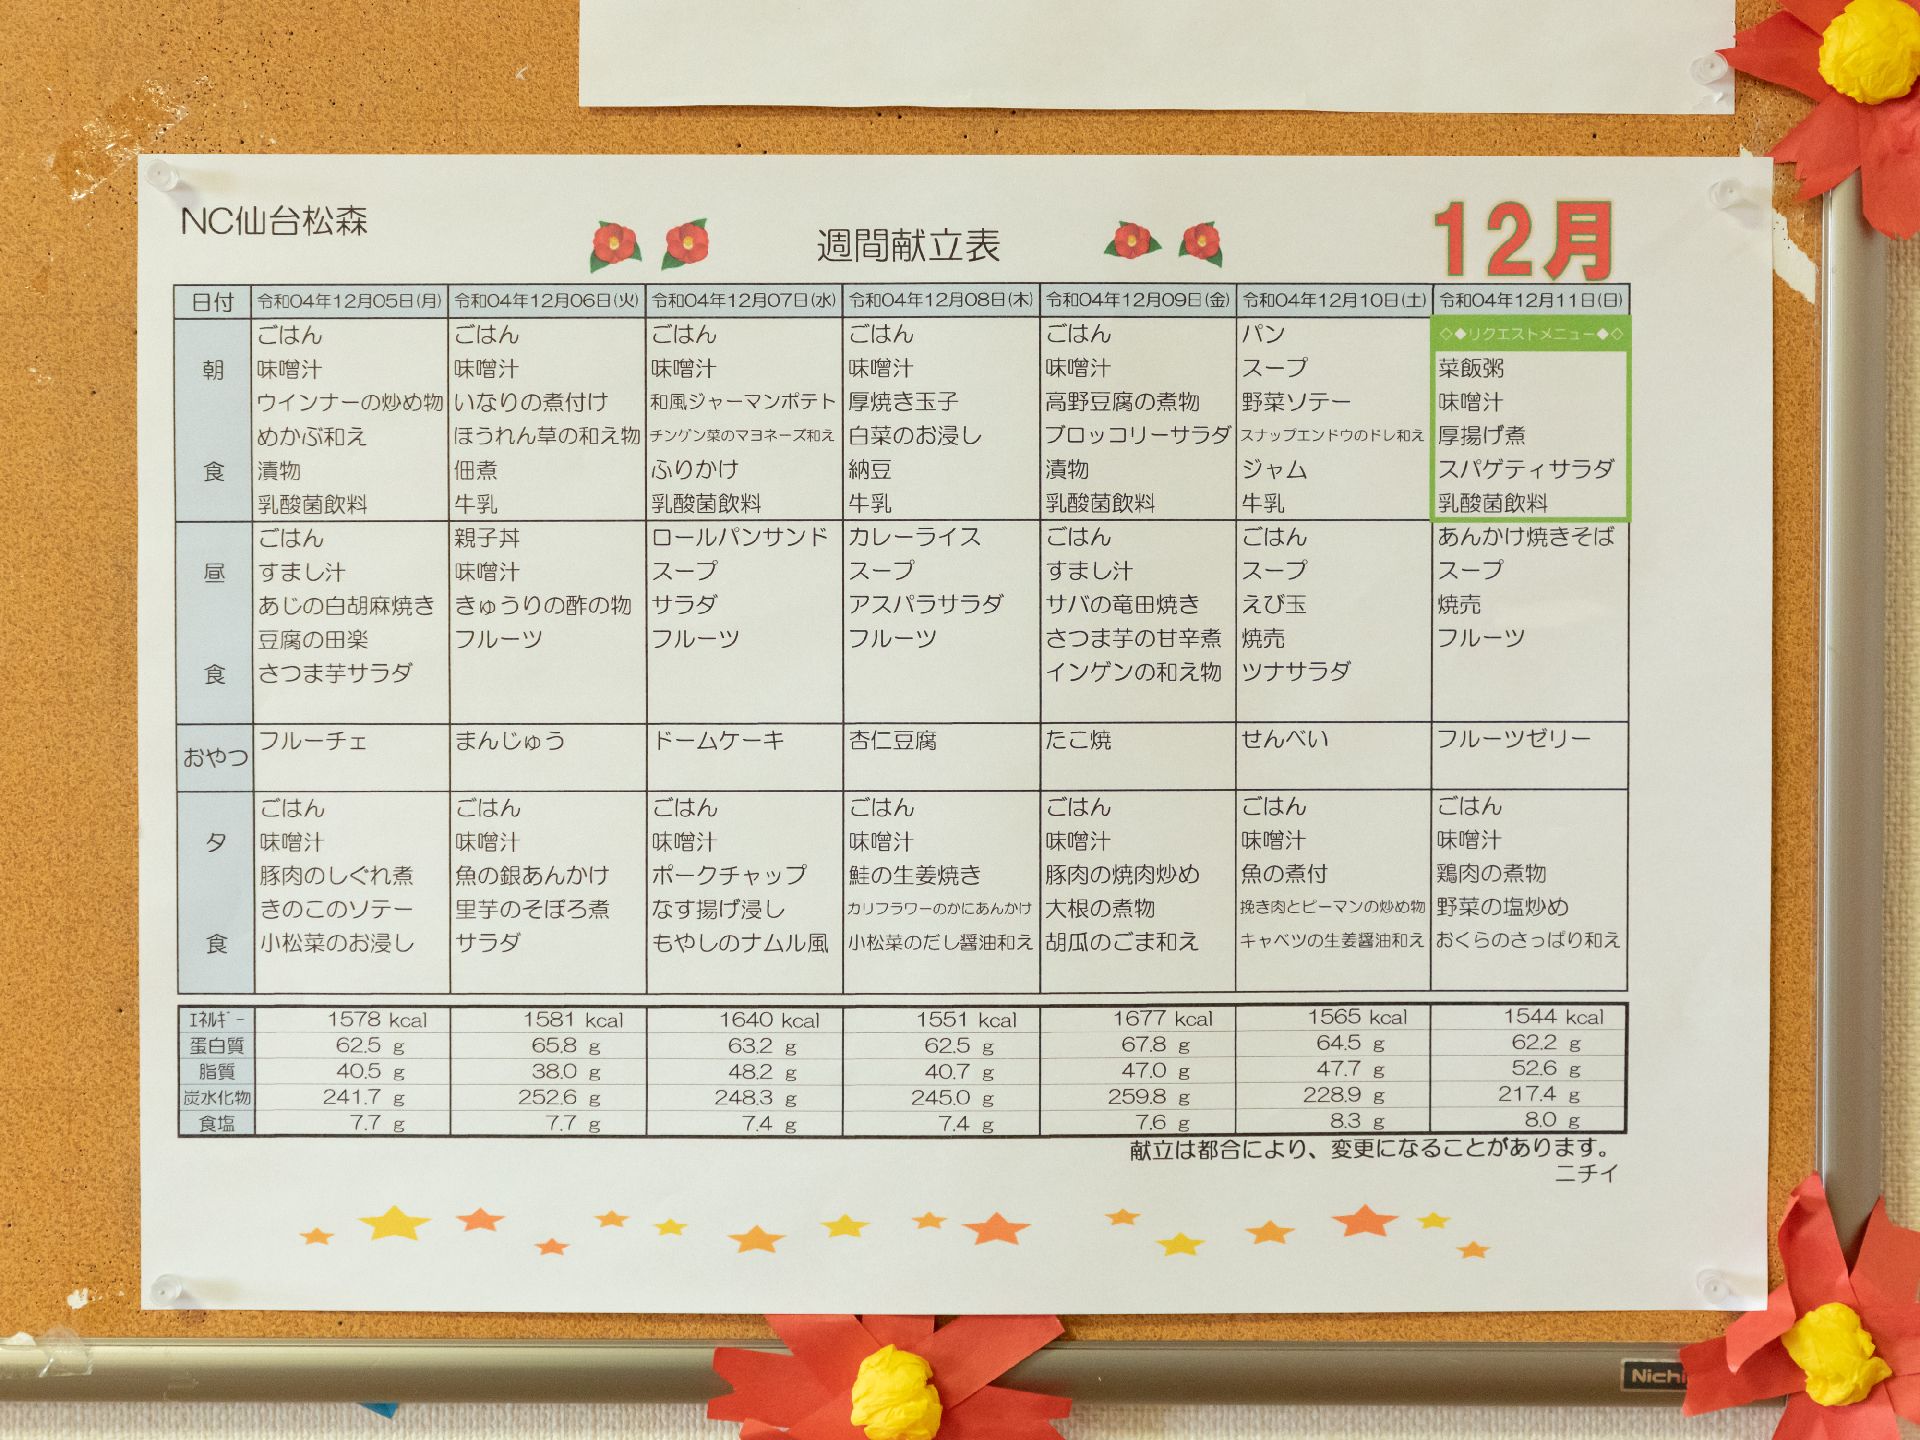 NC仙台松森
週間献立表
12月
日付 令和04年12月05日(月) 令和04年12月06日(火) 令和04年12月07日(水) 令和04年12月08日(木) 令和04年12月09日(金) 令和04年12月10日(土) 令和04年12月11日(日)
ごはん ごはん ごはん ごはん ごはん パン ◇◆リクエストメニュー◆◇
朝 味噌汁 味噌汁 味噌汁 味噌汁 味噌汁 スープ 菜飯粥
ウインナーの炒め物 いなりの煮付け 和風ジャーマンポテト 厚焼き玉子 高野豆腐の煮物 野菜ソテー 味噌汁
めかぶ和え ほうれん草の和え物 チンゲン菜のマヨネーズ和え 白菜のお浸し ブロッコリーサラダ スナップエンドウのドレ和え 厚揚げ煮
食 漬物 佃煮 ふりかけ 納豆 漬物 ジャム スパゲティサラダ
乳酸菌飲料 牛乳 乳酸菌飲料 牛乳 乳酸菌飲料 牛乳 乳酸菌飲料
ごはん 親子丼 ロールパンサンド カレーライス ごはん ごはん あんかけ焼きそば
昼 すまし汁 味噌汁 スープ スープ すまし汁 スープ スープ
あじの白胡麻焼き きゅうりの酢の物 サラダ アスパラサラダ サバの竜田焼き えび玉 焼売
豆腐の田楽 フルーツ フルーツ フルーツ さつま芋の甘辛煮 焼売 フルーツ
食 さつま芋サラダ インゲンの和え物 ツナサラダ
おやつ フルーチェ まんじゅう ドームケーキ 杏仁豆腐 たこ焼 せんべい フルーツゼリー
ごはん ごはん ごはん ごはん ごはん ごはん ごはん
夕 味噌汁 味噌汁 味噌汁 味噌汁 味噌汁 味噌汁 味噌汁
豚肉のしぐれ煮 魚の銀あんかけ ポークチャップ 鮭の生姜焼き 豚肉の焼肉炒め 魚の煮付 鶏肉の煮物
きのこのソテー 里芋のそぼろ煮 なす揚げ浸し カリフラワーのかにあんかけ 大根の煮物 挽き肉とピーマンの炒め物 野菜の塩炒め
食 小松菜のお浸し サラダ もやしのナムル風 小松菜のだし醤油和え 胡瓜のごま和え キャベツの生姜醤油和え おくらのさっぱり和え
ｴﾈﾙｷﾞｰ 1578 kcal 1581 kcal 1640 kcal 1551 kcal 1677 kcal 1565 kcal 1544 kcal
蛋白質 62.5 g 65.8 g 63.2 g 62.5 g 67.8 g 64.5 g 62.2 g
脂質 40.5 g 38.0 g 48.2 g 40.7 g 47.0 g 47.7 g 52.6 g
炭水化物 241.7 g 252.6 g 248.3 g 245.0 g 259.8 g 228.9 g 217.4 g
食塩 7.7 g 7.7 g 7.4 g 7.4 g 7.6 g 8.3 g 8.0 g
献立は都合により、変更になることがあります。
ニチイ
Nichi